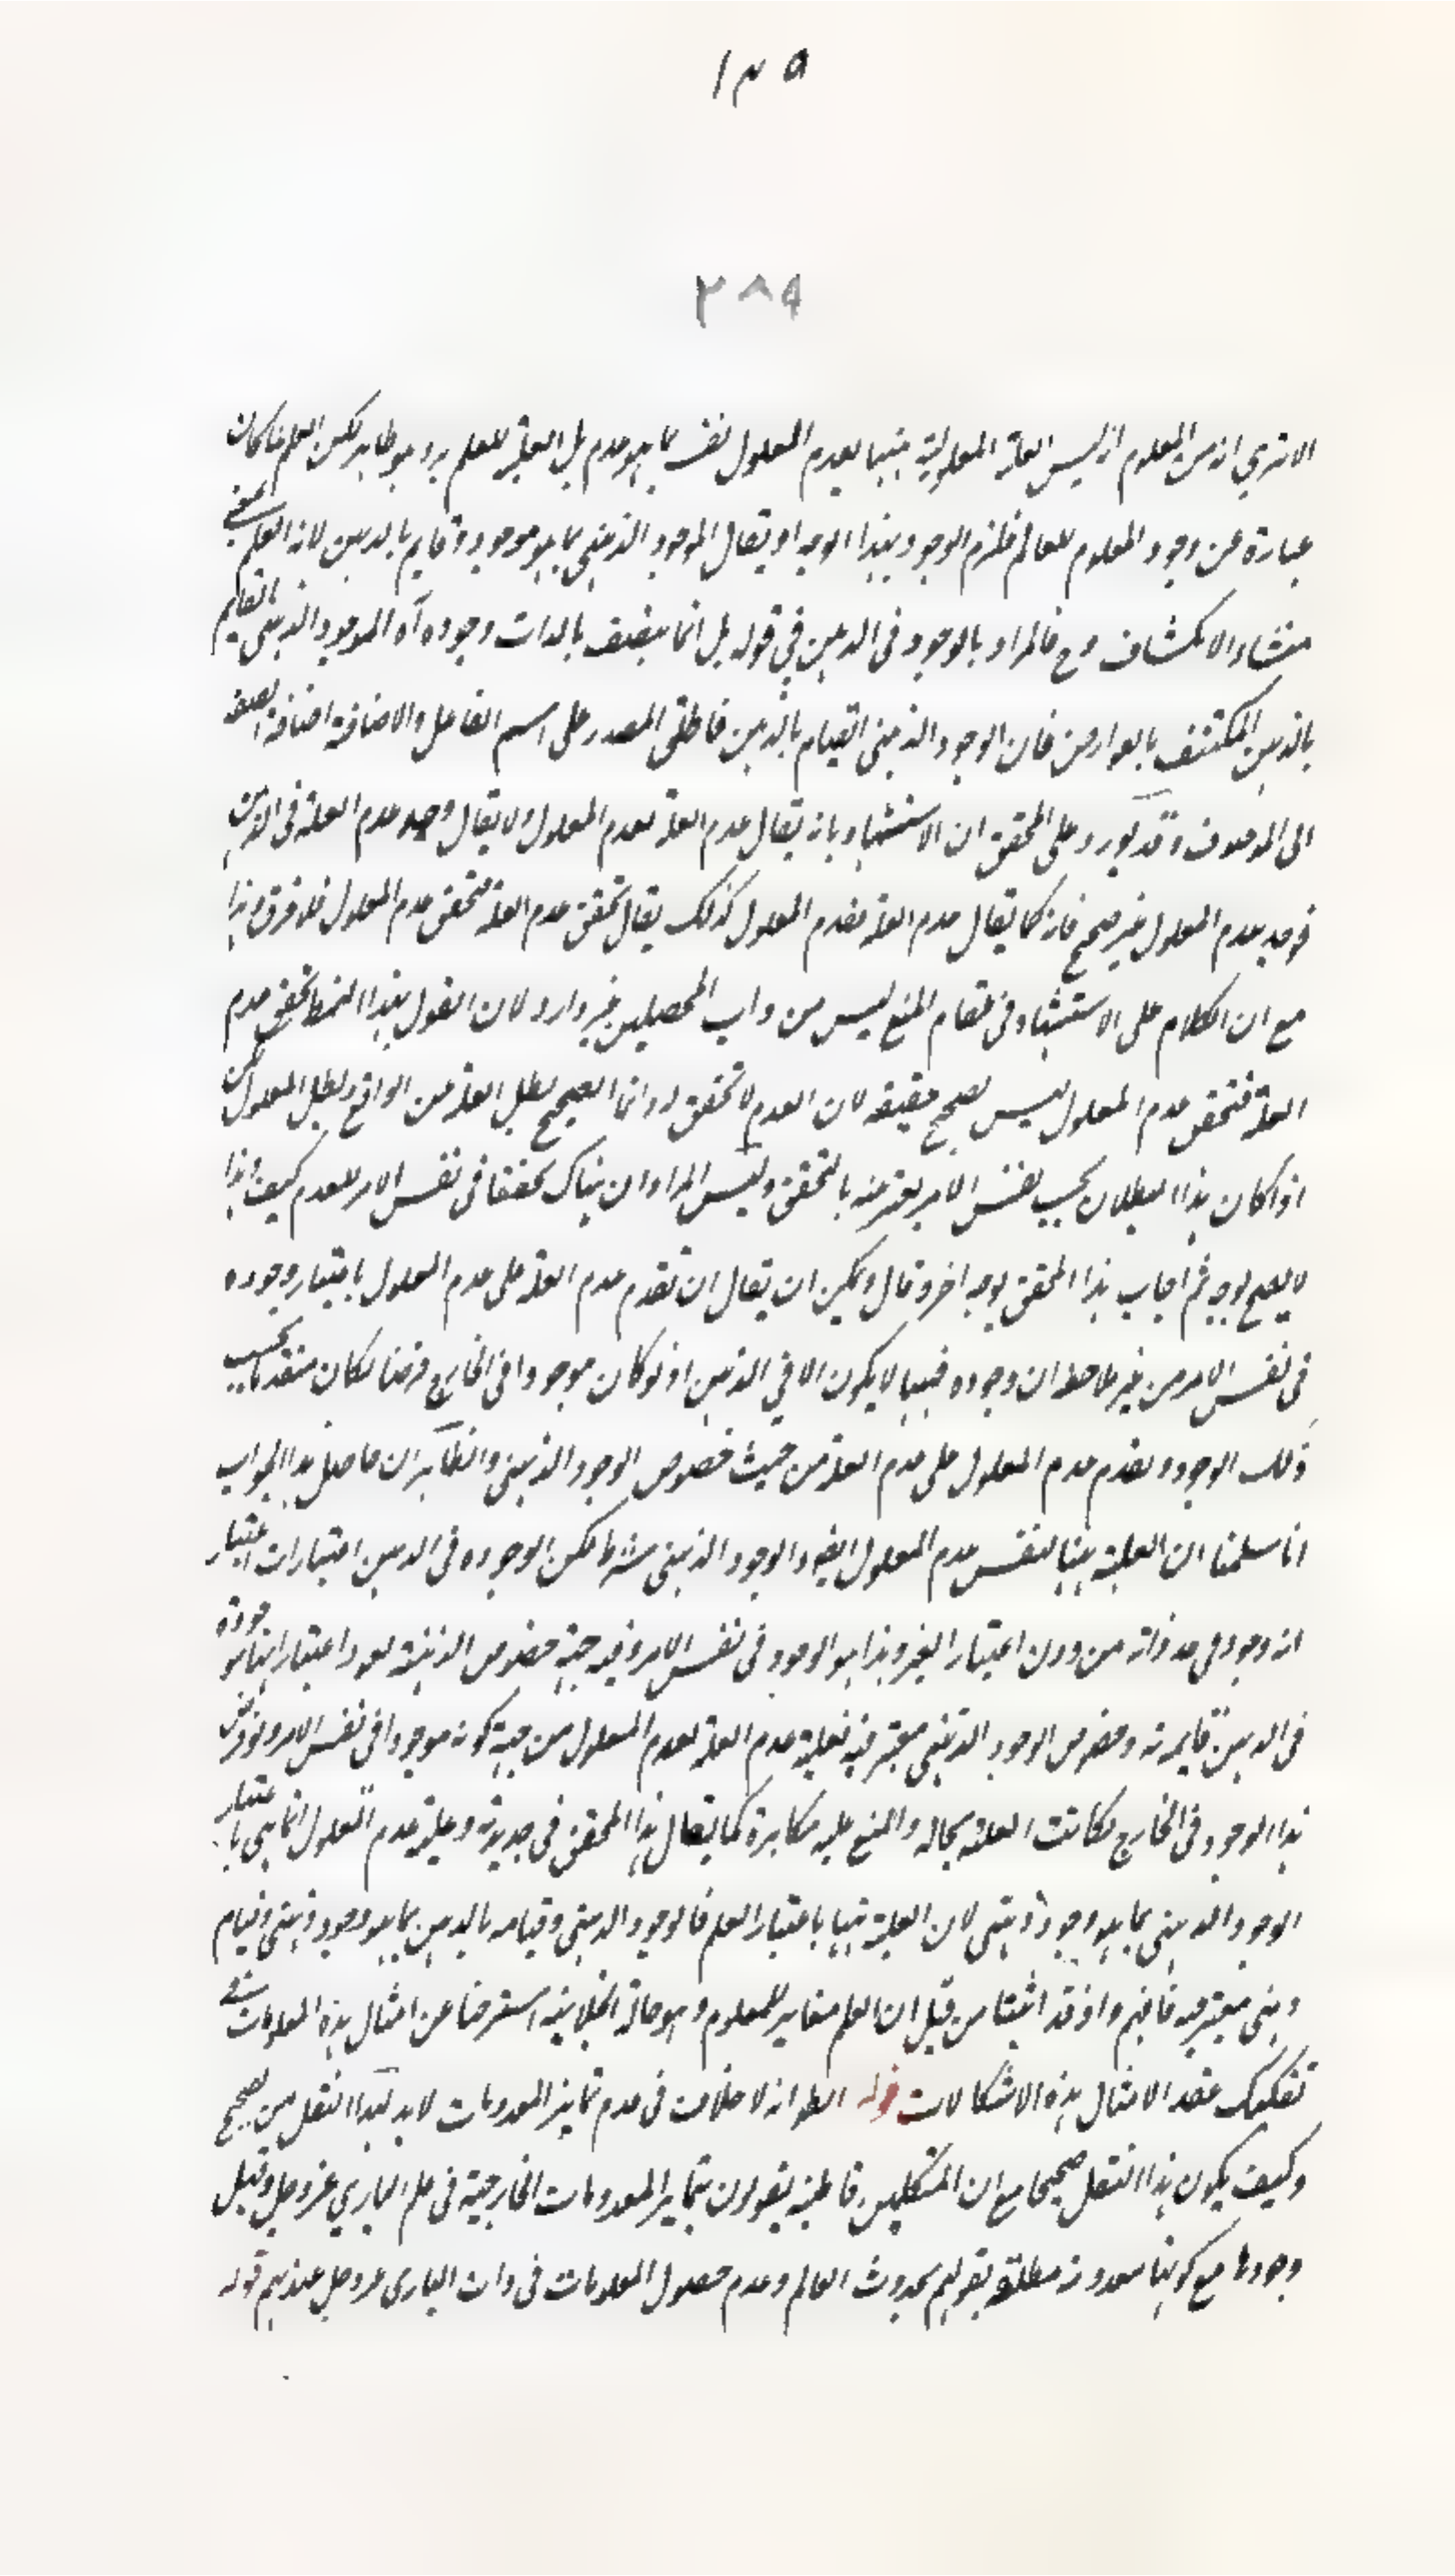 ١٣٥
٢٨٩
الا ترى ان من المعلوم ان ليس العلة المعلولية بعدم المعلول نفسه بما هو عدم بل العلم به وهو ظاهر لكن العلم لما كان
عبارة عن وجود المعلوم للعالم فلزم الوجود بهذا الوجه او يقال الموجود الذهني بما هو موجود وقايم بالذهن لانه العلم يعني
منشاء الانكشاف وح فالمراد بالوجود في الذهن في قوله بل انما يتصف بالذات وجوده اه الموجود الذهني القايم
بالذهن المكتنف بالعوارض فان الوجود الذهني القيام بالذهن فاطلق المصدر على اسم الفاعل والاضافة اضافة الصفة
الى الموصوف وقد يورد على المحقق ان الاستشهاد بانه يقال عدم العلة فعدم المعلول ولا يقال وجد عدم العلة في الذهن
فوجد عدم المعلول غير صحيح فانه كما يقال عدم العلة فعدم المعلول كذلك يقال تحقق عدم العلة فتحقق عدم المعلول فلا فرق وهذا
مع ان الكلام على الاستشهاد في مقام المنع ليس من داب المحصلين غير وارد لان القول بهذا النمط تحقق عدم
العلة فتحقق عدم المعلول ليس بصحيح حقيقة لان العدم لا تحقق له وانما الصحيح بطل العلة من الواقع فبطل المعلول لكن
اذا كان هذا البطلان بحسب نفس الامر يعبر عنه بالتحقق وليس المراد ان هناك تحققا في نفس الامر للعدم كيف وهذا
لا يصح بوجه ثم اجاب هذا المحقق بوجه اخر وقال ويمكن ان يقال ان تقدم عدم العلة على عدم المعلول باعتبار وجوده
في نفس الامر من غير ملاحظة ان وجوده فيها لا يكون الا في الذهن اذ لو كان موجودا في الخارج فرضا لكان متقدما بحسب
ذلك الوجود وتقدم عدم المعلول على عدم العلة من حيث خصوص الوجود الذهني والظاهر ان حاصل هذا الجواب
انا سلمنا ان العلية هنا لنفس عدم المعلول ايضا والوجود الذهني شرط لكن لوجوده في الذهن اعتبارات اعتبار
انه وجود في حد ذاته من دون اعتبار الغير وهذا هو الوجود في نفس الامر وفيه جهة خصوص الذهنية لغو واعتبار انها موجودة
في الذهن قايمة به وخصوص الوجود الذهني معتبر فيه فعلية عدم العلة لعدم المعلول من جهة كونه موجودا في نفس الامر ولو فرض
هذا الوجود في الخارج لكانت العلية بحاله والمنع عليه مكابرة كما يقال هذا المحقق في جديدته وعلية عدم المعلول انما هي باعتبار
الوجود الذهني بما هو وجود ذهني لان العلية هنا باعتبار العلم فالوجود الذهني وقيامه بالذهن بما هو وجود ذهني وقيام
ذهني معتبر فيه فافهم واذ قد اثبتنا من قبل ان العلم مغاير للمعلوم وهو حالة انجلائية استرحنا عن امثال هذه المعلومات في
تفكيك عقد الامثال هذه الاشكالات قوله الظ انه لا خلاف في عدم تمايز المعدومات لا بد لهذا النقل من تصحيح
وكيف يكون هذا النقل صحيحا مع ان المتكلمين قاطبة يقولون بتمايز المعدومات الخارجية في علم الباري عز وجل وقبل
وجودها مع كونها معدومة مطلقة بقولهم بحدوث العالم وعدم حصول المعلومات في ذات الباري عز وجل عندهم قوله